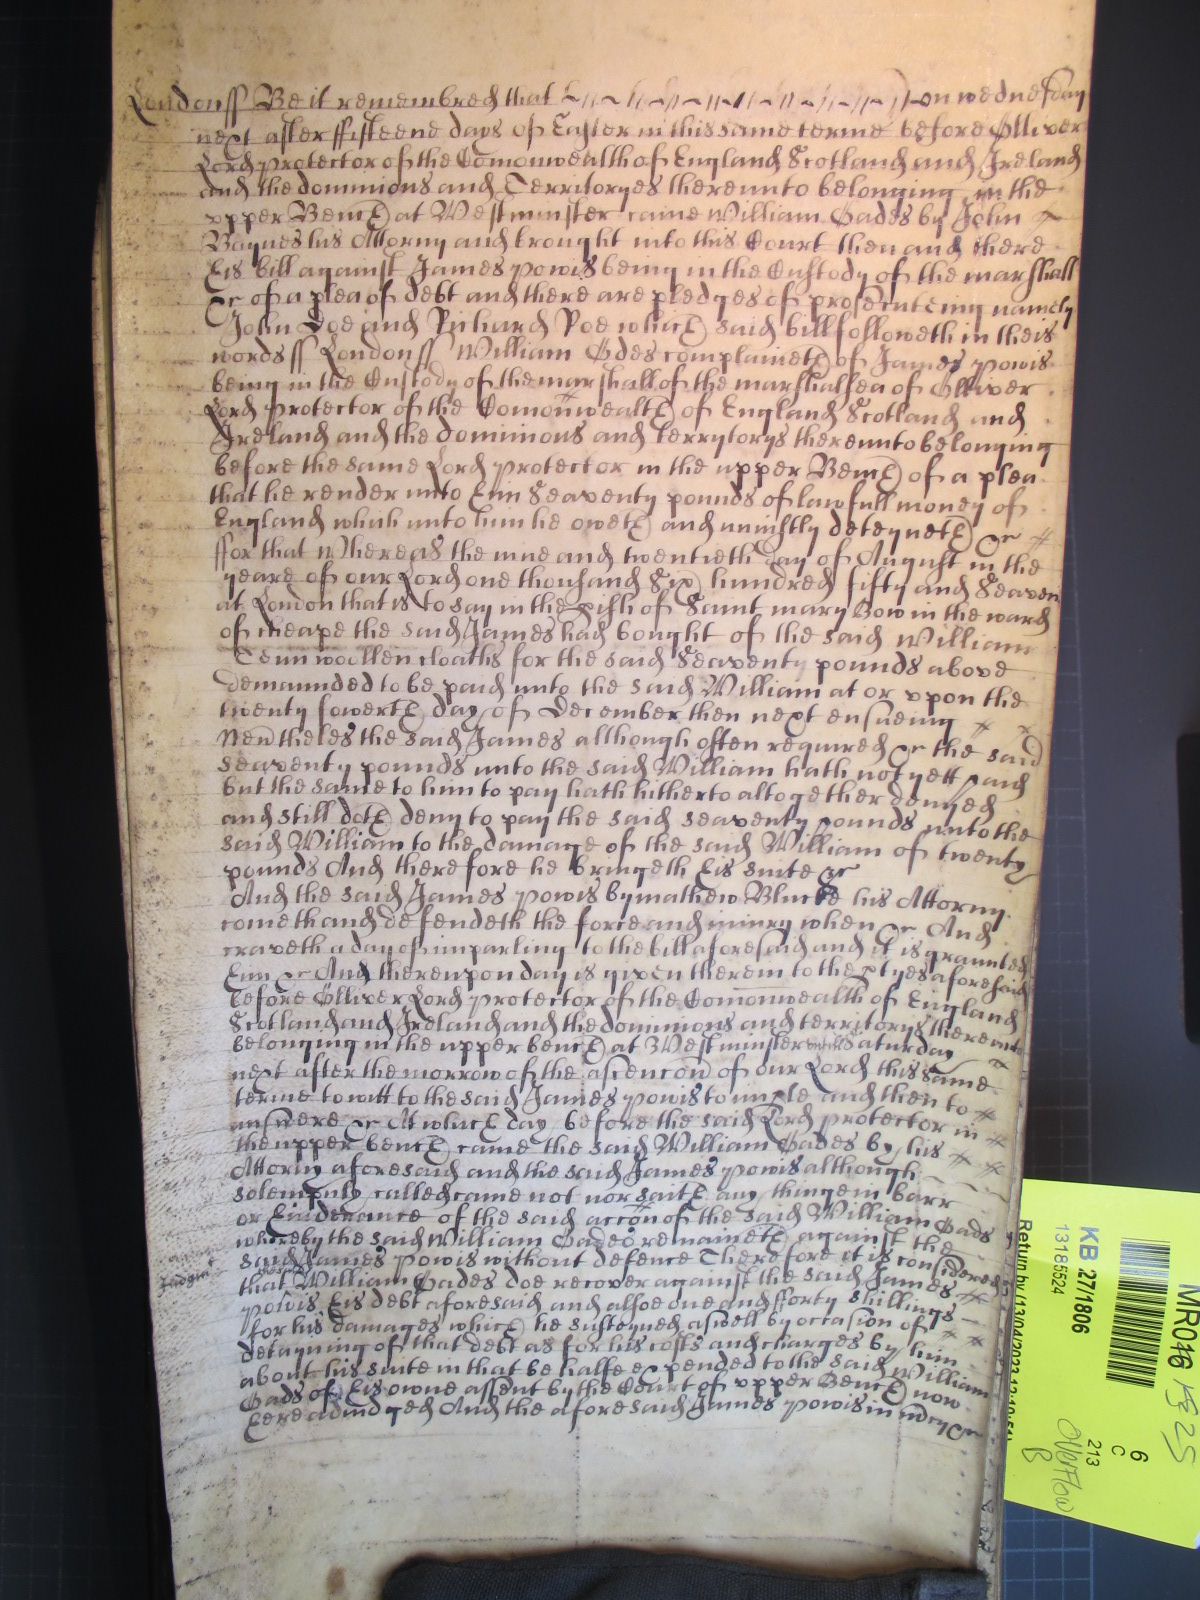 Londonss Be it remembred that on wednesday
next after ffifteene days of Easter in this same terme before Olliver
Lord protector of the Comonwealth of England Scotland and Ireland
and the dominions and Territoryes thereunto belonging in the
upper Bench at Westminster came William Eades by John
Baynes his Attorny and brought into this Court then and there
his bill against James Powis being in the Custody of the marshall
&c of a plea of debt and there are pledges of prosecuteing namely
John Doe and Richard Roe which said bill followeth in theis
words ss Londonss William Edes complaineth of James Powis
being in the Custody of the marshall of the marshalsea of Olliver
Lord protector of the Comonwealth of England Scotland and
Ireland and the dominions and terrytorys thereunto belonging
before the same Lord protector in the upper Bench of a plea
that he render unto him Seaventy pounds of lawfull money of
England which unto him he oweth and uniustly deteyneth &c
ffor that Whereas the nine and twentieth day of August in the
yeare of our Lord one thousand Six hundred fifty and Seaven
at London that is to say in the pish of Saint mary Bow in the ward
of cheape the said James had bought of the said William
Tenn woollen cloaths for the said Seaventy pounds above
demaunded to be paid unto the said William at or vpon the
twenty fowerth day of December then next ensueing
Neutheles the said James although often required &c the said
seaventy pounds unto the said William hath not yett paid
but the same to him to pay hath hitherto altogether denyed
and still doth deny to pay the said seaventy pounds unto the
said William to the damage of the said William of twenty
pounds And therefore he bringeth his suite &c
And the said James Powis by mathew Blucke his Attorny
cometh and defendeth the force and iniury when &c And
craveth a day of imparling to the bill aforesaid and it is graunted
him &c And thereupon day is given therein to the ptyes aforesaid
before Olliver Lord protector of the Comonwealth of England
Scotland and Ireland and the dominions and territorys thereunto
belonging in the upper bench at Westminster untill Saturday
next after the morrow of the ascencon of our Lord this same
terme to witt to the said James Powis to imple and then to
answere &c At which day before the said Lord protector in
the upper bench came the said William Eades by his
Attorny aforesaid and the said James Powis although
solempnly called came not nor saith any thinge in barr
or hinderance of the said accon of the said William Eads
whereby the said William Eades remaineth against the
said James Powis without defence Therefore it is considered
that William Eades doe recover against the said James
Powis his debt aforesaid and alsoe one and fforty shillings
for his damages which he susteyned aswell by occasion of
detayning of that debt as for his costs and charges by him
about his suite in that behalfe expended to the said William
Eads of his owne assent by the Court of upper Bench now
here adiudged And the aforesaid James Powis in mcy &c
KB 27/1806
13189524
6
C
213
Overflow
B